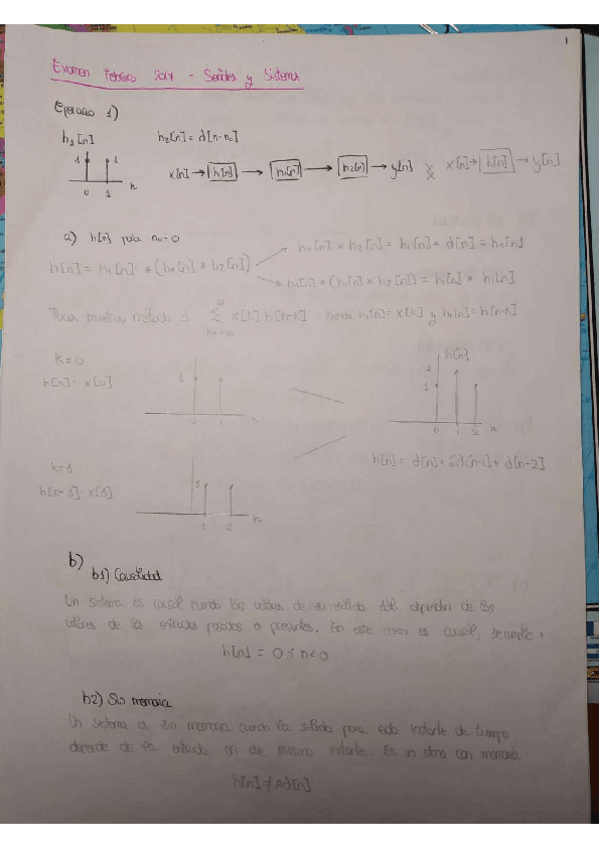 1
Examen Febrero 2017 - Señales y Sistemas
Ejercicio 1)
h₁[n]
h₂[n] = d[n-n₀]
1 1
0 1 n
x[n] → h₁[n] → h₁[n] → h₂[n] → y[n] x[n] → h[n] → y[n]
a) h[n] para n₀=0
h₁[n] * h₂[n] = h₁[n] * d[n] = h₁[n]
h[n] = h₁[n] * (h₁[n] * h₂[n])
h₁[n] * (h₁[n] * h₂[n]) = h₁[n] * h₁[n]
método 1 Σ x[k] h[n-k] siendo h₁[n] = x[k] y h₁[n] = h[n-k]
k=-∞
k=0
h[n] · x[0]
1
0 1 n
h[n]
2
1
0 1 2 n
h[n] = d[n] + 2d[n-1] + d[n-2]
k=1
h[n-1] x[1]
1
1 2 n
b)
b1) Causalidad
Un sistema es causal cuando los valores de su salida solo dependen de los
valores de las entradas pasadas o presentes. En este caso es causal, se cumple
h[n] = 0 si n<0
b2) Sin memoria
Un sistema es sin memoria cuando la salida para cada instante de tiempo
depende de la entrada en ese mismo instante. Es un stma con memoria
h[n] ≠ Ad[n]